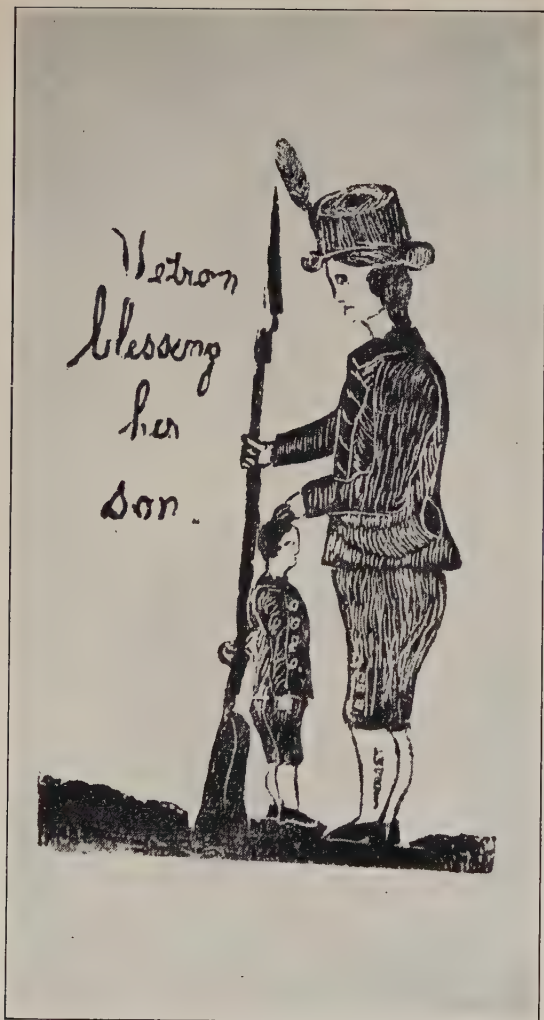 Vetron
blessing
her
son.